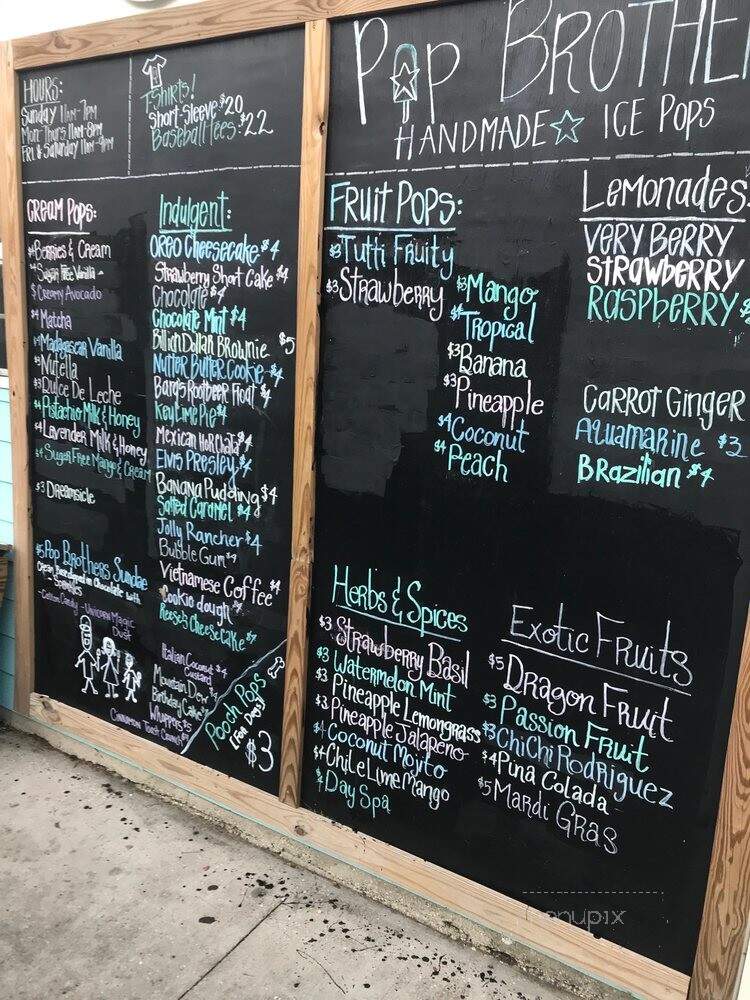 HOURS:
Sunday 11am-7pm
Mon-Thurs 11am-8pm
Fri & Saturday 11am-9pm
T-Shirts!
Short-Sleeve $20
Baseball Tees: $22
CREAM POPS:
$4 Berries & Cream
Sugar Free Vanilla
$ Creamy Avocado
$4 Matcha
$4 Madagascar Vanilla
Nutella
$3 Dulce De Leche
$4 Pistachio Milk & Honey
$4 Lavender Milk & Honey
$4 Sugar Free Mango & Cream
$3 Dreamsicle
$5 Pop Brothers Sundae
Cream Pops dipped in Chocolate with
- Sprinkles
- Cotton Candy - Unicorn Magic
Dust
Indulgent:
Oreo Cheesecake $4
Strawberry Short Cake $4
Chocolate $4
Chocolate Mint $4
Billion Dollar Brownie $5
Nutter Butter Cookie $4
Barqs Rootbeer Float $4
Key Lime Pie $4
Mexican Horchata $4
Elvis Presley $4
Banana Pudding $4
Salted Caramel $4
Jolly Rancher $4
Bubble Gum $4
Vietnamese Coffee $4
Cookie dough $4
Reese's Cheesecake $4
Italian Coconut $4
Custard
Mountain Dew
Birthday Cake
Whoppers $5
Cinnamon Toast Crunch
Pooch Pops
(For Dogs)
$3
POP BROTHE
HANDMADE ☆ ICE POPS
FRUIT POPS:
$3 Tutti Fruity
$3 Strawberry
$3 Mango
$4 Tropical
$3 Banana
$3 Pineapple
$4 Coconut
$4 Peach
Lemonades:
VERY BERRY
STRAWBERRY
RASPBERRY $
CARROT GINGER
AQUAMARINE $3
BRAZILIAN $4
Herbs & Spices
$3 Strawberry Basil
$3 Watermelon Mint
$3 Pineapple Lemongrass
$3 Pineapple Jalapeño
$4 Coconut Mojito
$4 Chile Lime Mango
$4 Day Spa
Exotic Fruits
$5 Dragon Fruit
$3 Passion Fruit
$3 ChiChi Rodriguez
$4 Pina Colada
$5 Mardi Gras
menupix